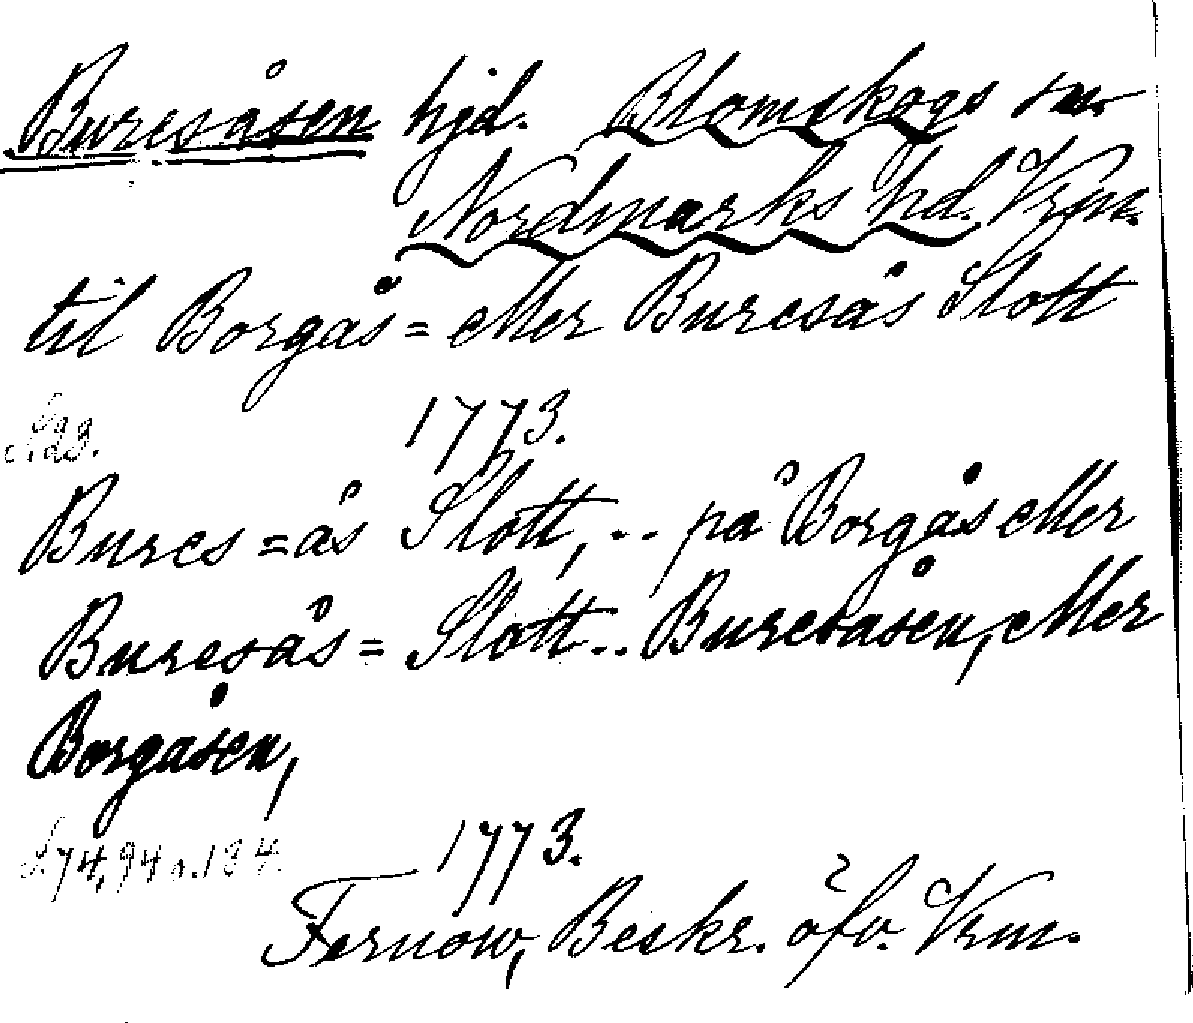 Buresåsen hjd. Blomskogs sn.
Nordmarks hd. Vrm.
til Borgås= eller Buresås Slott
1773.
Bures=ås Slott, .. på Borgås eller
Buresås= Slott .. Buresåsen, eller
Borgåsen,
S. 74, 94 o. 184. 1773.
Fernow, Beskr. öfv. Vrm.